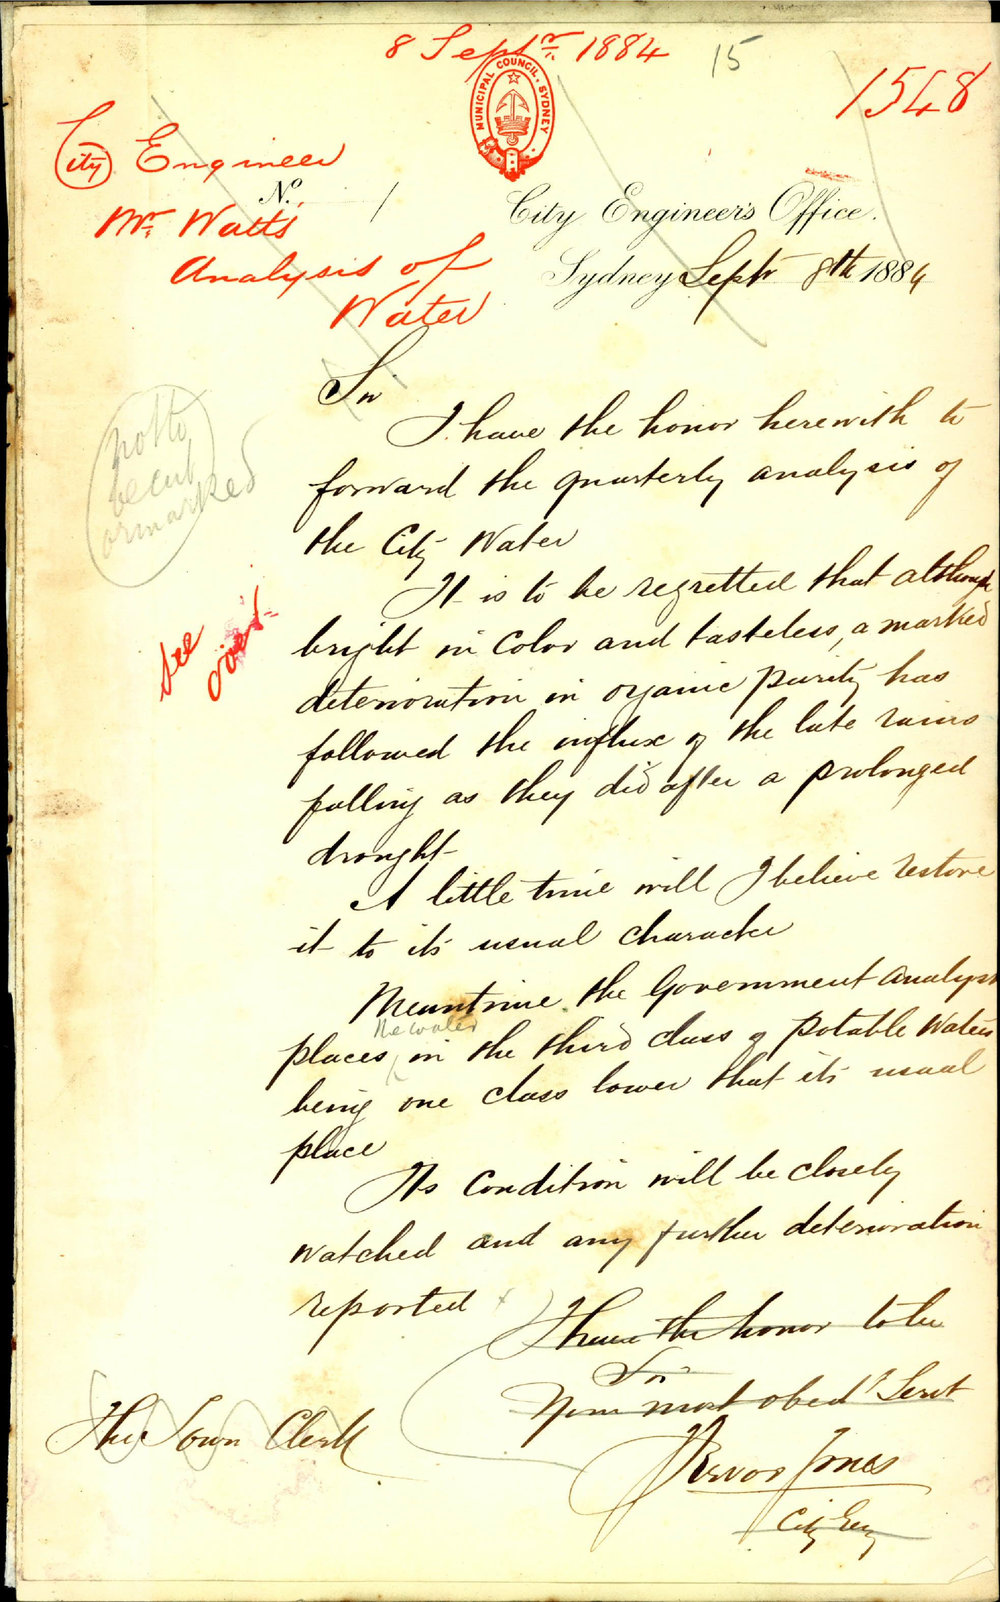 8 Septr. 1884
15
1548
MUNICIPAL COUNCIL. SYDNEY
City Engineer
No. 1
Mr. Watts'
Analysis of
Water
City Engineer's Office.
Sydney Septr 8th 1884
Sir
I have the honor herewith to
forward the quarterly analysis of
the City Water
It is to be regretted that although
bright in color and tasteless, a marked
deterioration in organic purity has
followed the influx of the late rains
falling as they did after a prolonged
drought
A little time will I believe restore
it to its usual character
Meantime the Government Analyst
the water
places in the third class of potable Waters
being one class lower that its usual
place
Its condition will be closely
watched and any further deterioration
reported
I have the honor to be
Sir
Your most obedt Servt
Trevor Jones
City Eng
The Town Clerk
not to
be cut
or marked
See
over.